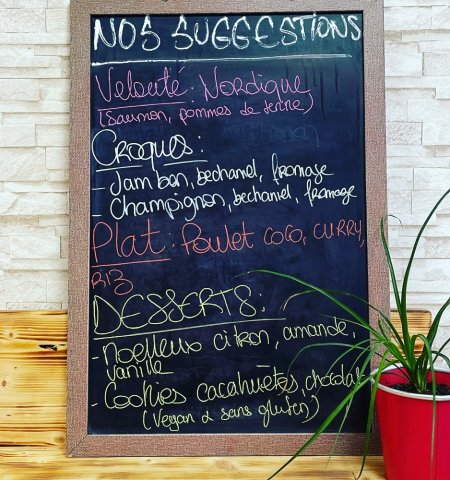 NOS SUGGESTIONS
Velouté : Nordique
(Saumon, pommes de terre)
Croques :
- Jambon, bechamel, fromage
- Champignon, bechamel, fromage
Plat : Poulet coco, curry,
riz
DESSERTS :
- Moelleux citron, amande,
vanille
- Cookies cacahuètes, chocolat
(Vegan & sans gluten)